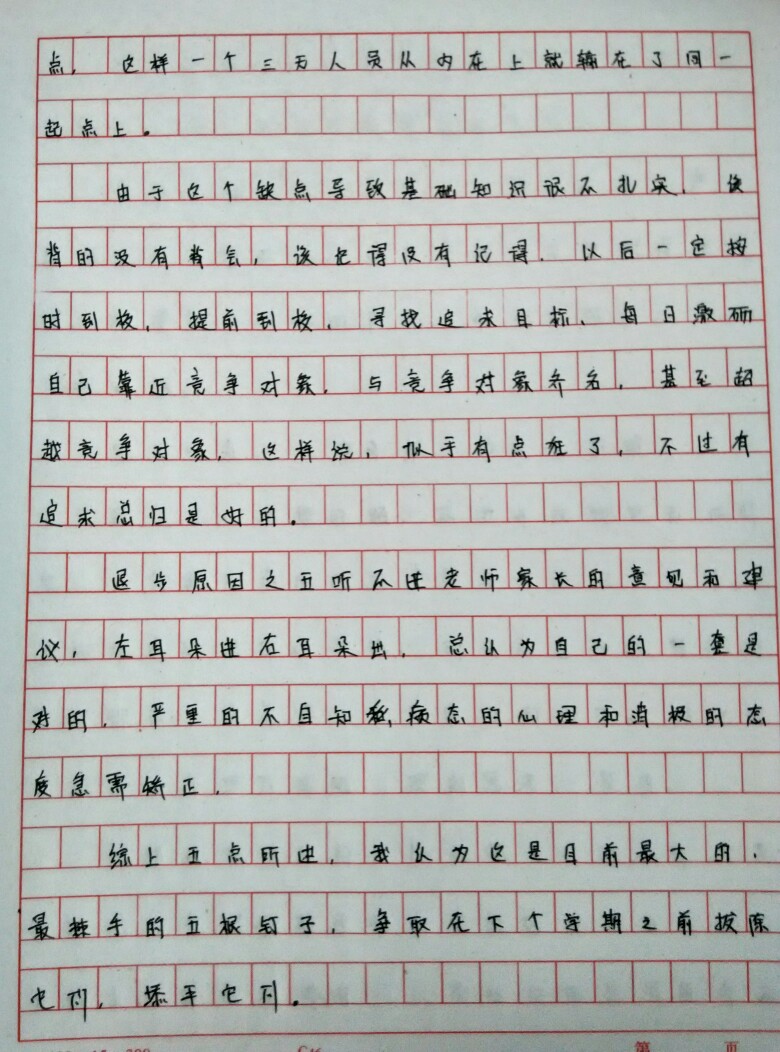 点，这样一个三万人员从内在上就输在了同一
起点上。
由于这个缺点导致基础知识很不扎实，该
背的没有背会，该记得没有记得，以后一定按
时到校，提前到校，寻找追求目标，每日激励
自己靠近竞争对象，与竞争对象齐名，甚至超
越竞争对象，这样说，似乎有点狂了，不过有
追求总归是好的。
退步原因之五听不进老师家长的意见和建
议，左耳朵进右耳朵出，总认为自己的一套是
对的，严重的不自知，病态的心理和消极的态
度急需矫正，
综上五点所述，我认为这是目前最大的，
最棘手的五根钉子，争取在下个学期之前拔除
它们，添平它们。
C16
第 页